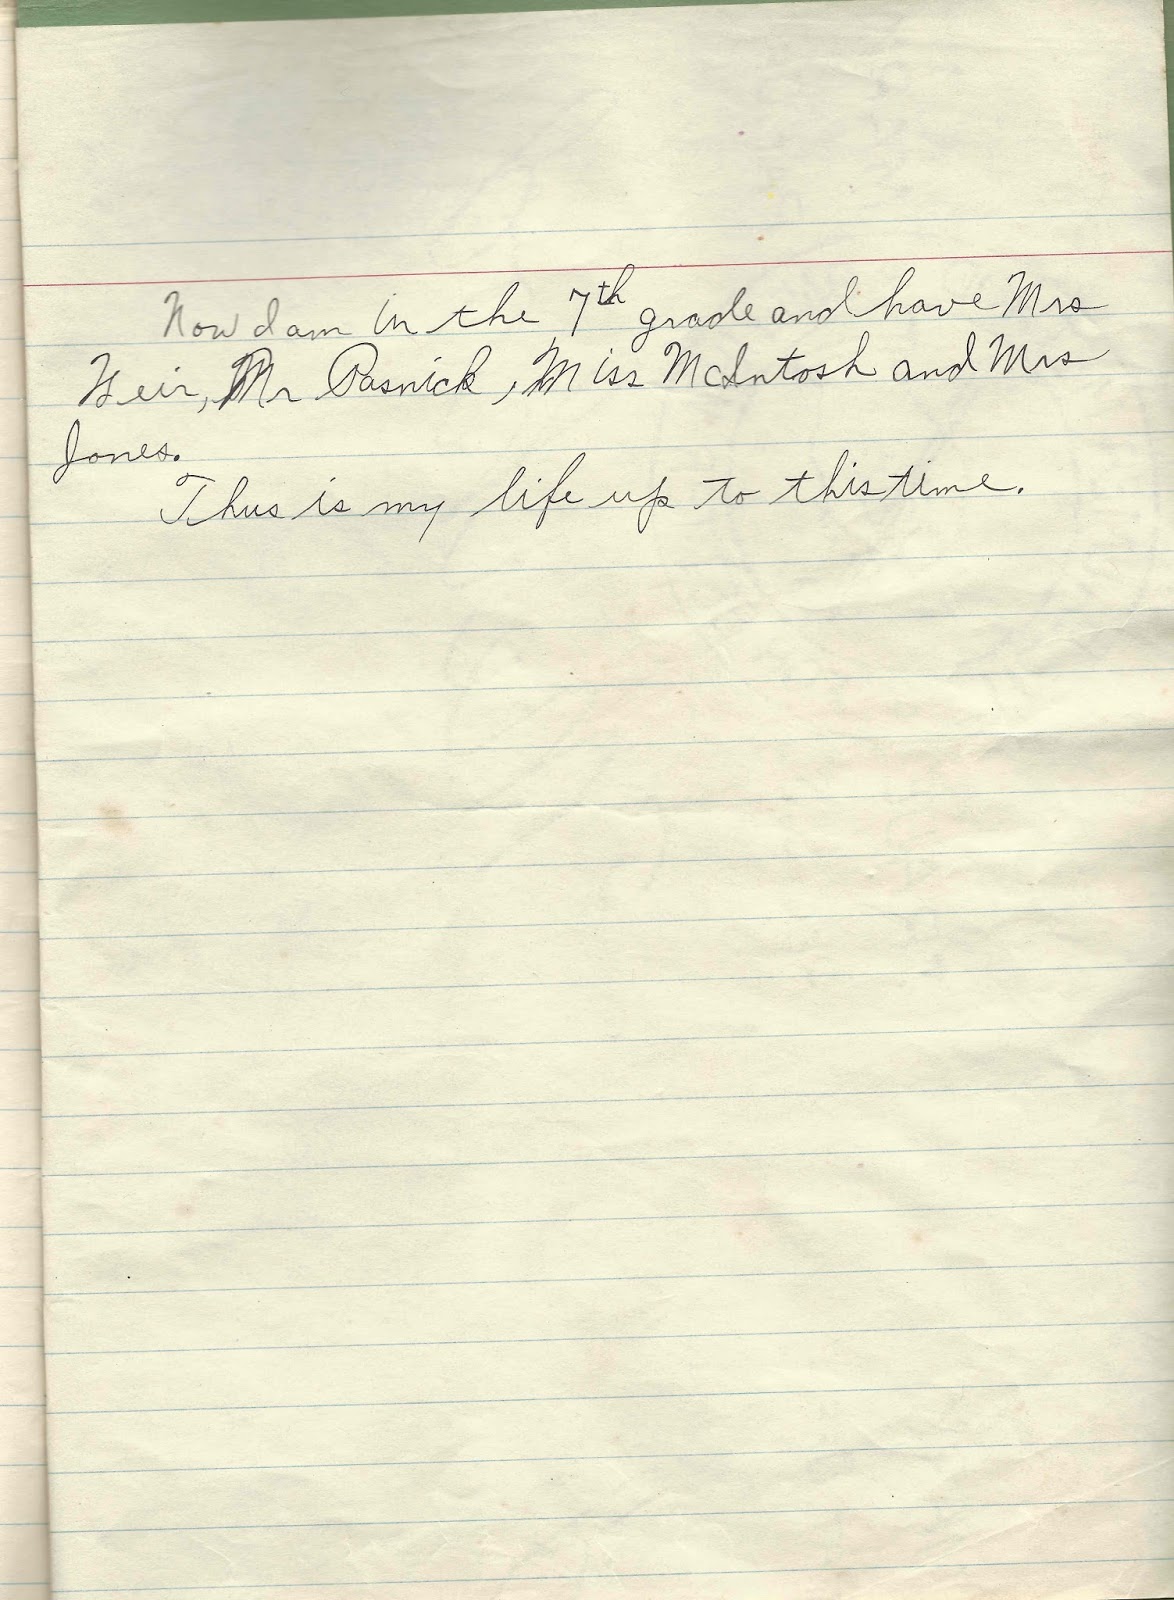 Now I am in the 7th grade and have Mrs
Weir, Mr Pasnick, Miss McIntosh and Mrs
Jones.
Thus is my life up to this time.